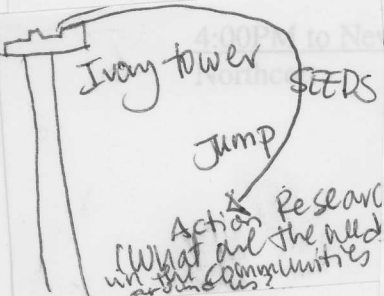 4:00PM to Ne
Northe
Ivory tower
SEEDS
Jump
Action Researc
(What are the need
in the communities
around us?